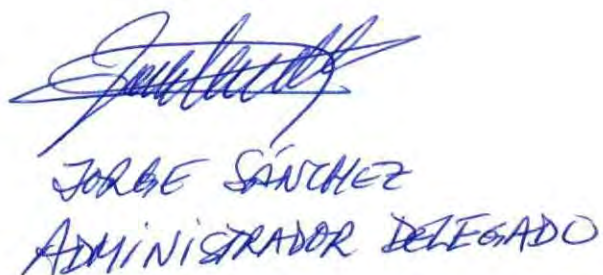 JORGE SÁNCHEZ
ADMINISTRADOR DELEGADO